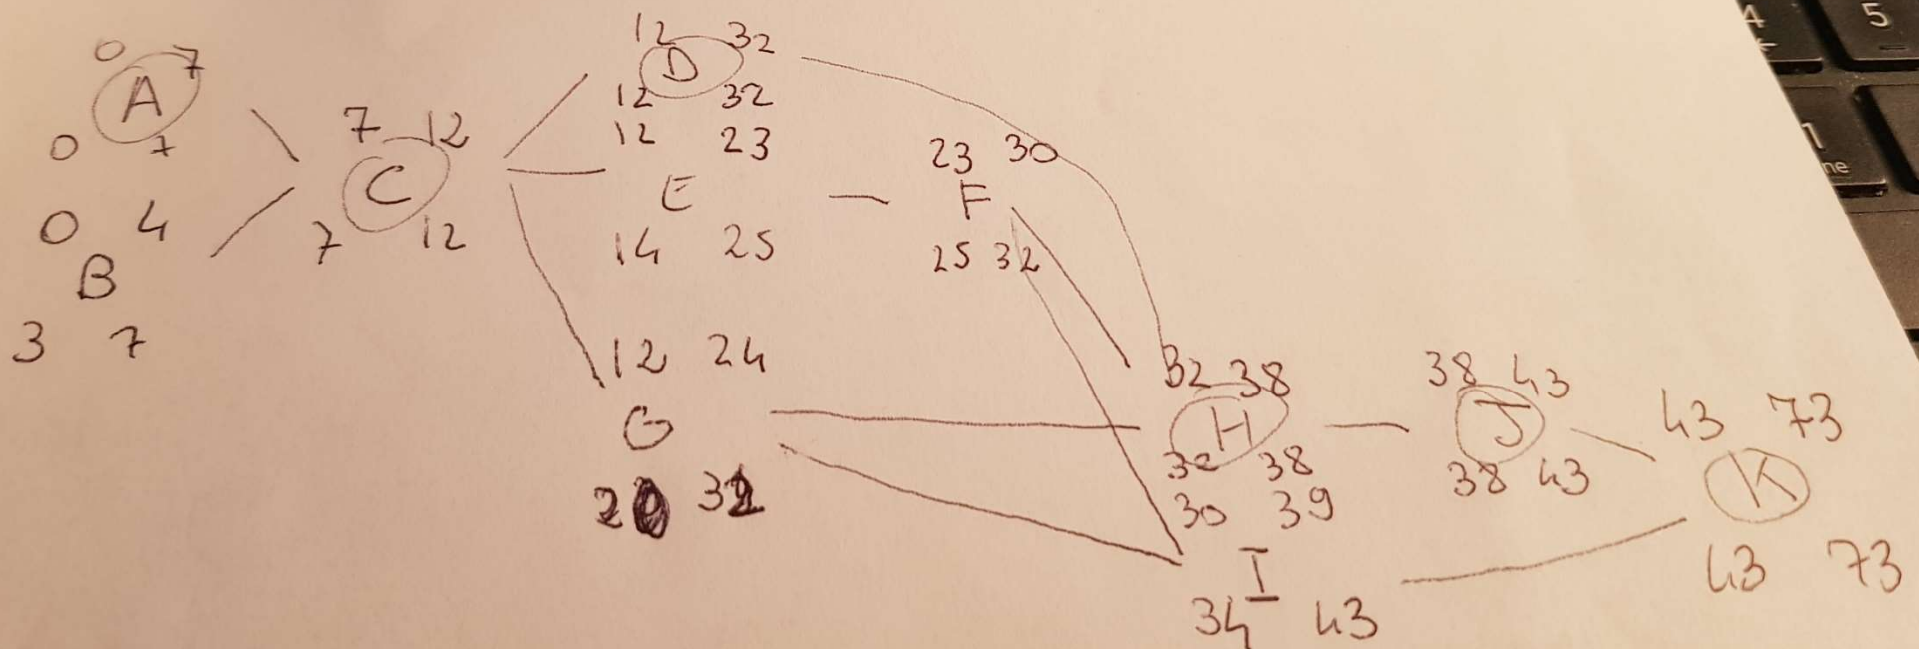 0 7
A
0 7
0 4
B
3 7
7 12
C
7 12
12 32
D
12 32
12 23
E
14 25
23 30
F
25 32
12 24
G
20 32
32 38
H
32 38
30 39
I
34 43
38 43
J
38 43
43 73
K
43 73
4 5
1